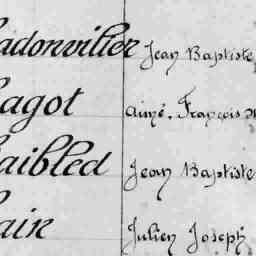 adonvilier Jean Baptiste
agot aimé, François
aibled Jean Baptiste
ain Julien Joseph